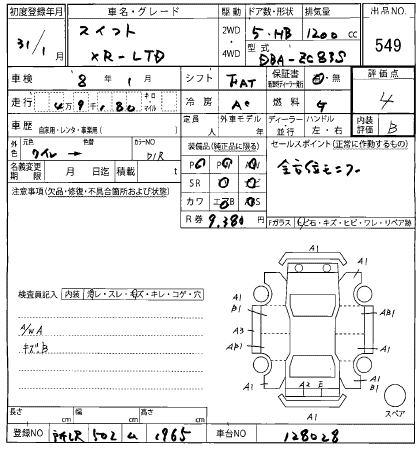 初度登録年月 車名・グレード 駆動 ドア数・形状 排気量 出品NO.
31/1 スイフト 2WD 5・HB 1200 cc 549
XR-LTD 4WD 型式 DBA-ZC83S
車検 8年1月 シフト FAT 保証書 有・無 評価点
走行 4万9千,180 キロ・マイル 冷房 AC 燃料 G 4
車歴 自家用・レンタ・事業用( ) 定員 人 外車モデル 年 ディーラー・並行 ハンドル 左・右 内装評価 B
外色 元色 色替 カラーNO
装備品(純正品に限る) セールスポイント(正常に作動するもの)
名義変更期限 月 日迄 積載 t
PS PW ナビ 全方位モニター
SR
注意事項(欠品・修復・不具合箇所および状態) カワ エアB ABS
R券 9,380円 Fガラス
検査員記入 内装
A/WA
キズB
A1 A1 A1
A1 B1 AB1
A3 A1
AB1
A1 A2 E A1 B1
A1
スペア
長さ cm 幅 cm 高さ cm
登録NO 502 1965 車台NO 128028